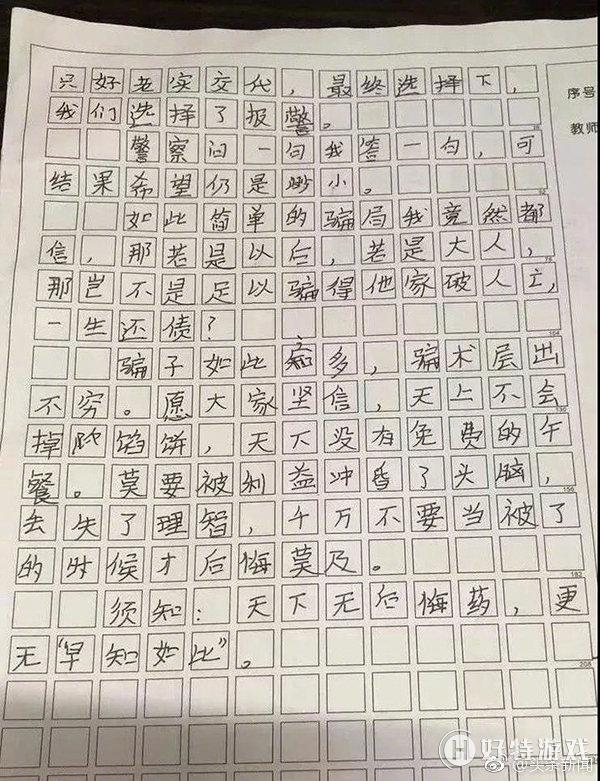 只好老实交代，最终选择下，
序号
我们选择了报警。
教师
警察问一句我答一句，可
结果希望仍是渺小。
52
如此简单的骗局我竟然都
信，那若是以后，若是大人，
78
那岂不是足以骗得他家破人亡，
一生还债？
104
骗子如此之多，骗术层出
不穷。愿大家坚信，天上不会
130
掉馅饼，天下没有免费的午
餐。莫要被利益冲昏了头脑，
156
去失了理智，千万不要当被了
的时候才后悔莫及。
182
须知：天下无后悔药，更
无“早知如比”。
208
好特游戏
@头条新闻